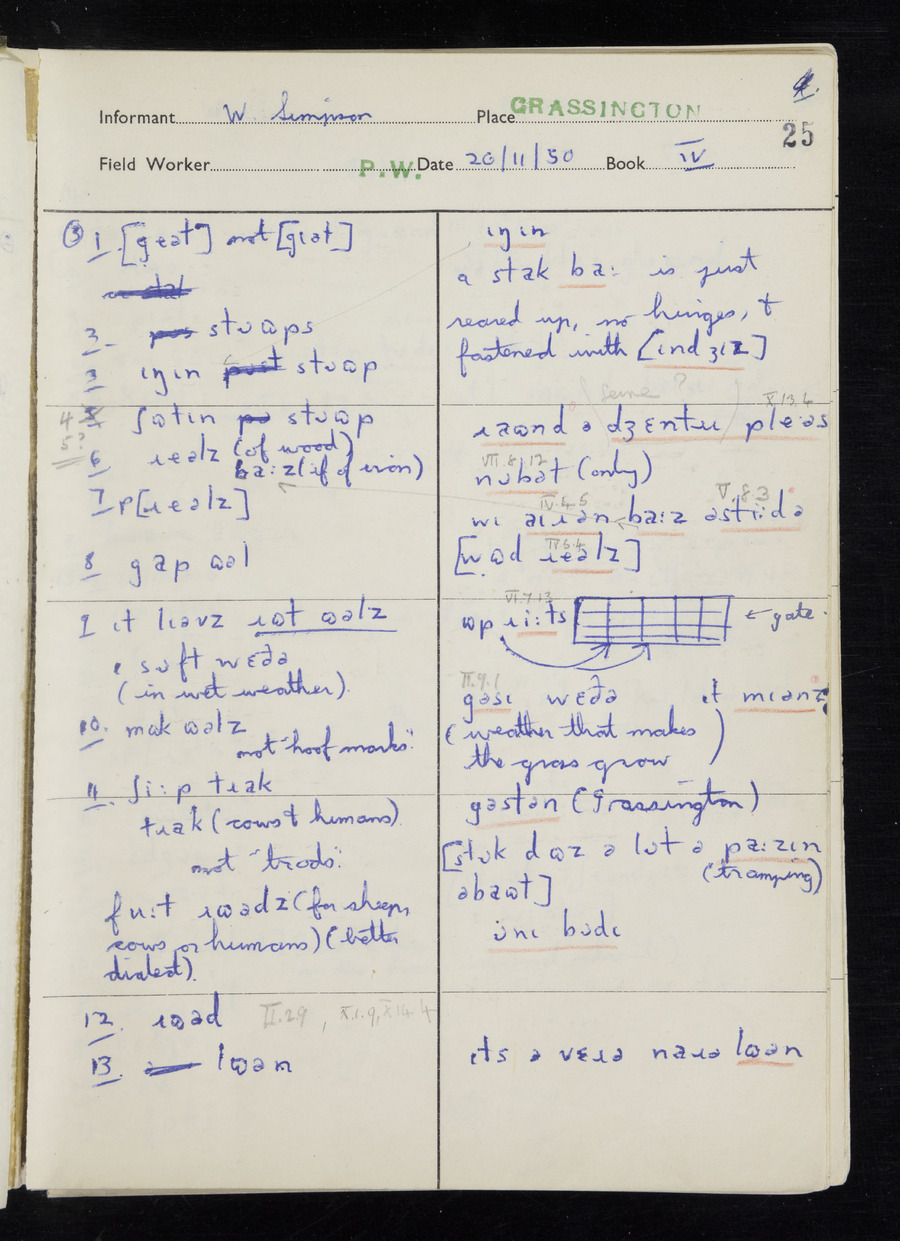 Informant W. Simpson Place GRASSINGTON
25
Field Worker P.W. Date 20/11/50 Book IV
③ 1. [geət] not [giət]
2. stʊəps
3 ɪŋɪn stʊəp
4
5?
ʃɒtɪn stʊəp
6 ɹeəlz (of wood)
ba:z (if of iron)
7 p[ɹeəlz]
8 gap
9 ɪt
ə sʊft wɛðə
(in wet weather).
10. mak
not "hoof marks".
11. ʃi:p tɹak
tɹak (cows & humans).
not "trods".
fu:t (for sheep,
cows or humans) (better
dialect).
12. ɹʊəd II.2.9, X.1.9, X14.4
13. lʊən
ɪŋɪn
a stak ba: is just
reared up, no hinges, &
fastened with
(same?)
X.13.4
ə dʒɛntɹɪ pleəs
VII.8.12
nʊbət (only)
IV.4.5 V.8.3
wɪ aɪɹən ba:z əstɪ:də
IV.6.4
[wʊd ɹeəlz]
VI.7.13
← gate.
II.9.1
gəsɪ wɛðə ɪt mɪənz
(weather that makes
the grass grow)
gəstən (Grassington)
[stʊk dʊz ə lɒt ə pa:zɪn
(tramping)
əbaʊt]
ɒnɪ bʊdɪ
ɪts ə vɛɹə naɹə lʊən